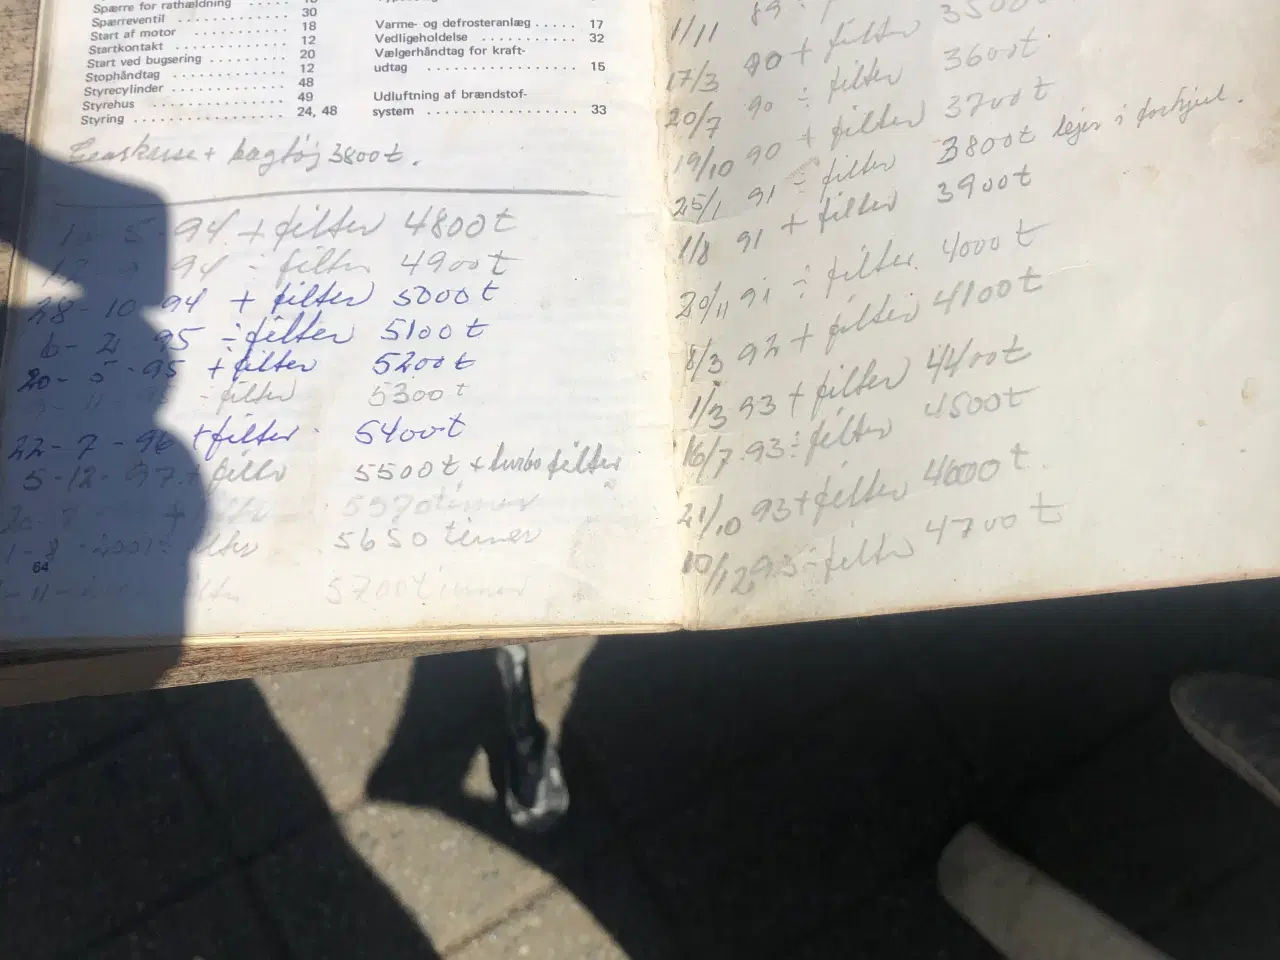 Spærre for rathældning
Spærreventil 30
Start af motor 18
Startkontakt 12
Start ved bugsering 20
Stophåndtag 12
Styrecylinder 48
Styrehus 49
Styring 24, 48
Varme- og defrosteranlæg 17
Vedligeholdelse 32
Vælgerhåndtag for kraft-
udtag 15
Udluftning af brændstof-
system 33
Gearkasse + bagtøj 3800t.
5-94 + filter 4800t
94 ÷ filter 4900t
28-10-94 + filter 5000t
6-2 95 ÷ filter 5100t
20-5-95 + filter 5200t
÷ filter 5300t
22-7-96 + filter 5400t
5-12-97 + filter 5500t + turbo filter
+ 5570 timer
1-8- filter 5650 timer
64
11- filter 5700 timer
1/11 89 ÷
17/3 90 + filter 3500
20/7 90 ÷ filter 3600t
19/10 90 + filter 3700t
25/1 91 ÷ filter 3800t lejer i forhjul.
1/8 91 + filter 3900t
20/11 91 ÷ filter 4000t
8/3 92 + filter 4100t
1/3 93 + filter 4400t
16/7 93 ÷ filter 4500t
21/10 93 + filter 4600t
10/12 93 ÷ filter 4700t